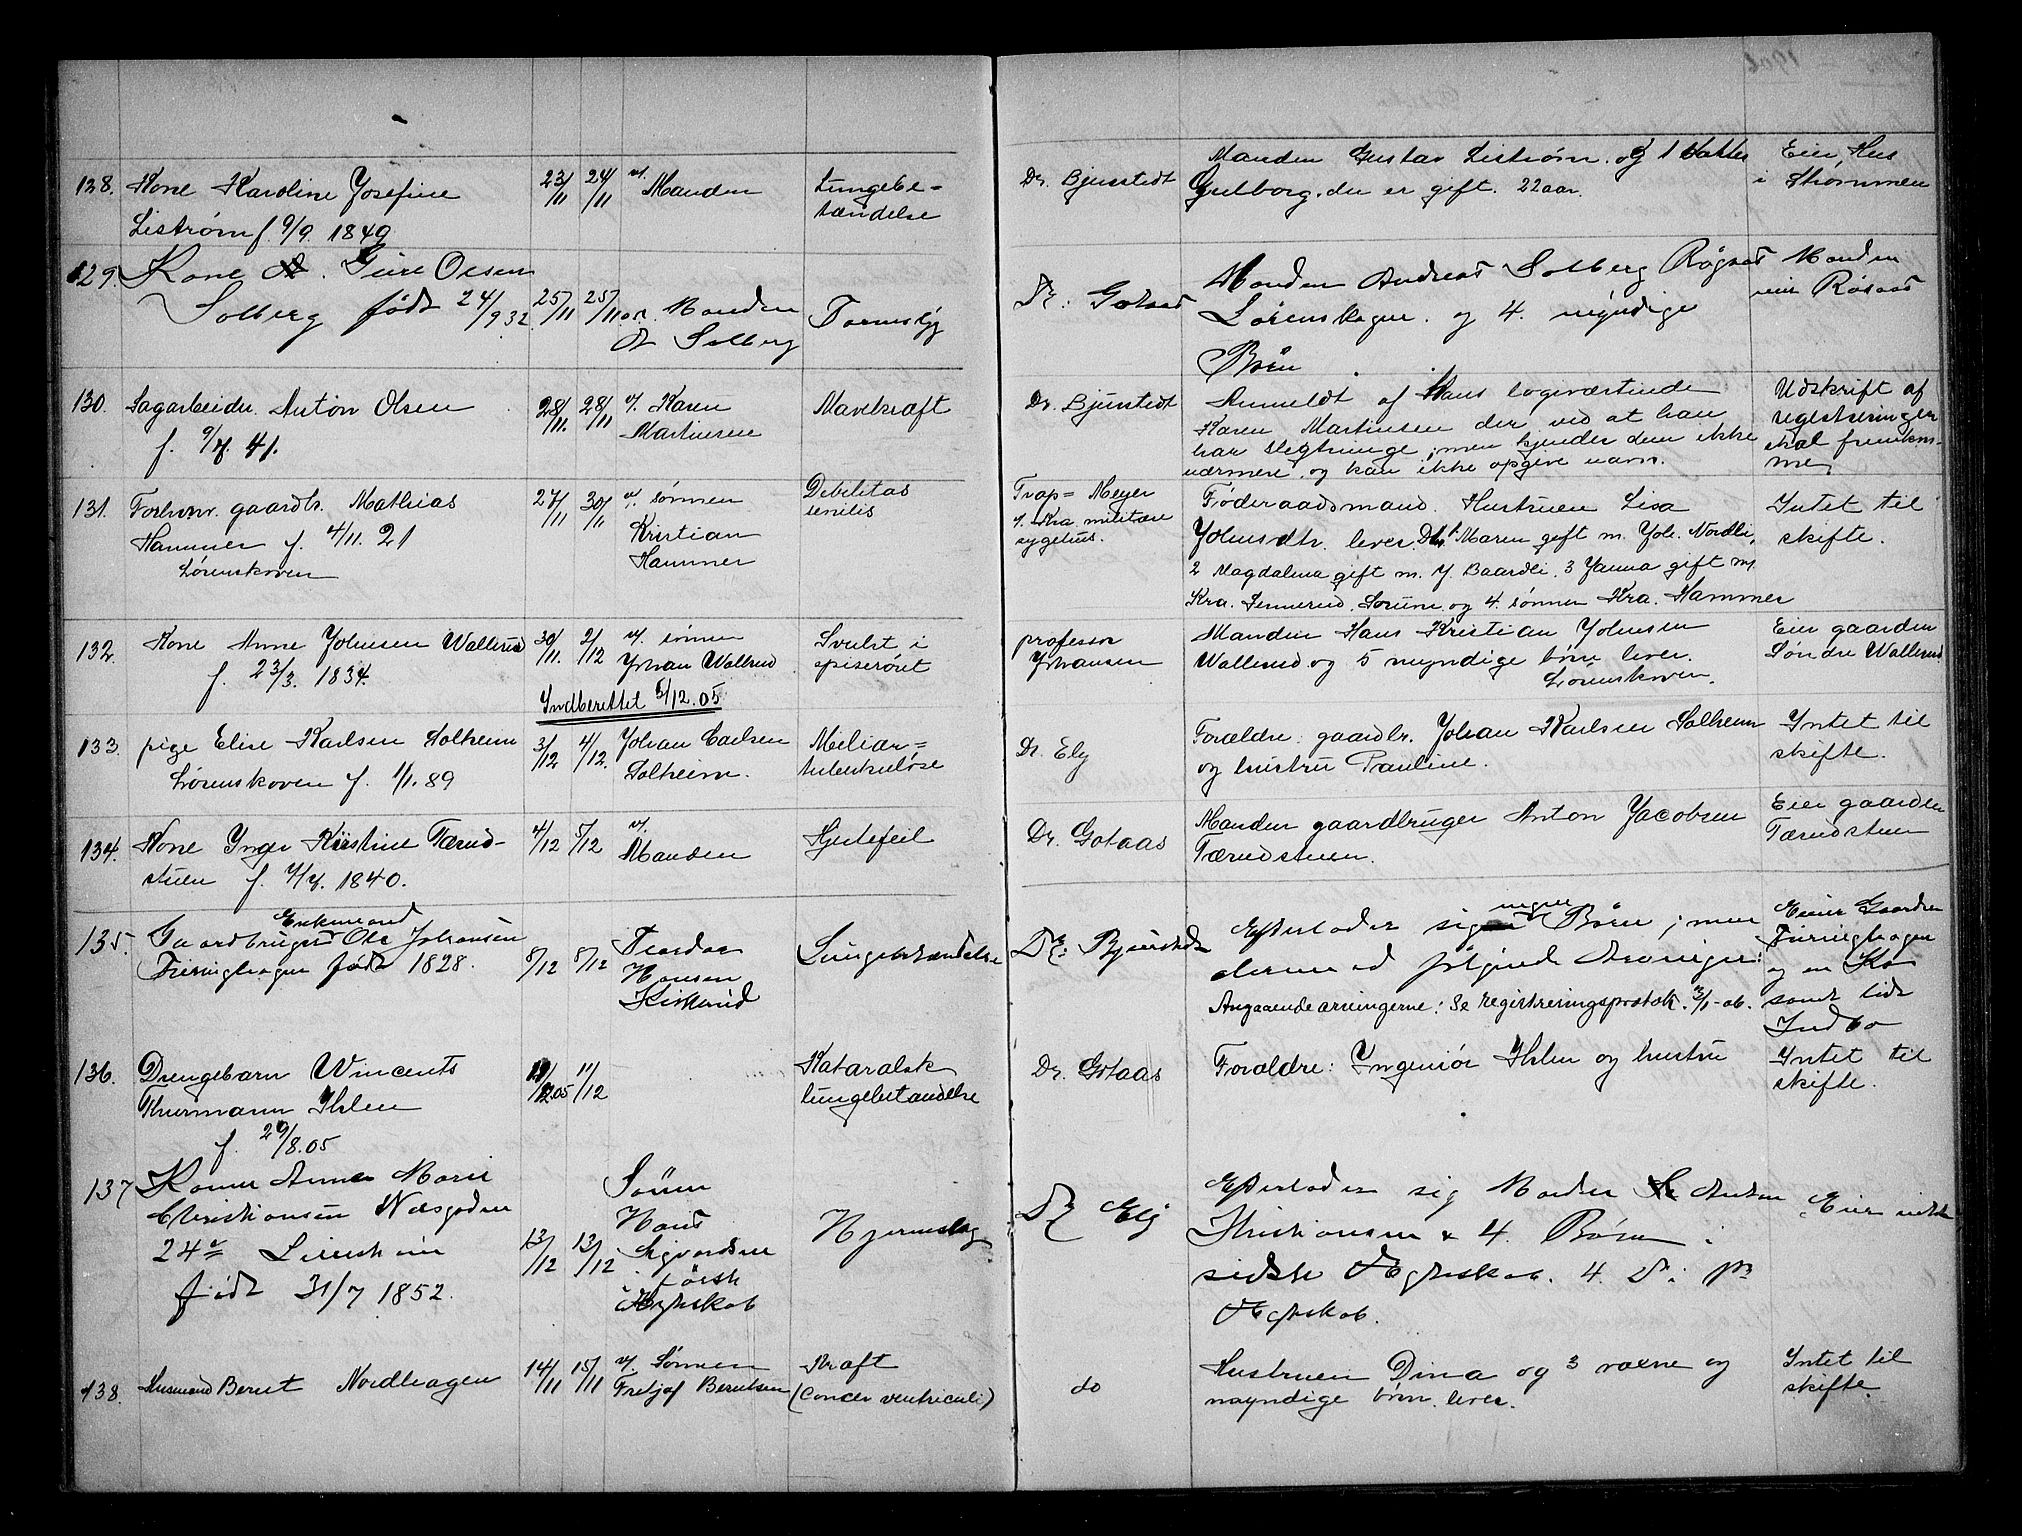 128. Kone Karoline Josefine 23/11 24/11 v. Manden Lungebe-
Listrøm f. 9/9. 1849 tændelse
Dr. Bjurstedt Manden Gustav Listrøm og 1 datter Eier Hus
Gulborg, der er gift. 22 aar. i Strømmen
129. Kone Olsen
Solberg født 24/9 32 25/11 25/11 Manden
A Solberg
Dr. Gotaas Manden Andreas Solberg Manden
Lørenskogen og 4. myndige eier
Børn
130. Sagarbeider Anton Olsen 28/11. 28/11 v. Karen Mavekræft
f. 9/7. 41. Martinsen
Dr. Bjurstedt Anmeldt af Hans logiværtinde Udskrift af
Karen Martinsen der ved at han registreringen
har slegtninge, men kjender dem ikke skal fremkom-
nærmere og kan ikke opgive navn. me
131. Forhenv. gaardbr. Mathias 27/11 30/11 v. sønnen Debilitas
Hammer f. 4/11. 21 Kristian senilis
Lørenskoven Hammer
Meyer Føderaadsmand. Hustruen Lisa Intet til
v. Kra. militære Johnsdtr. lever. 1 Maren gift m. Joh. Nordli, skifte.
sygehus. 2 Magdalena gift m. J. Baardli. 3 Janna gift m.
Kra. Jennerud, Sørum og 4. sønnen Kra. Hammer
132. Kone Anne Johnsen Wallerud 30/11. 2/12 v. sønnen Svulst i
f. 23/3. 1834. Johan Wallerud spiserøret
professor Manden Hans Kristian Johnsen Eier gaarden
Johansen Wallerud og 5 myndige børn lever. Søndre Wallerud
Lørenskoven.
Indberettet 5/12.05
133. pige Elise Karlsen Solheim 3/12 4/12. Johan Carlsen Miliær=
Lørenskoven f. 1/1. 89 Solheim. tuberkuløse
Dr. Ely Forældre: gaardbr. Johan Karlsen Solheim Intet til
og hustru Pauline. skifte.
134. Kone Inger Kirstine Tærud- 4/12 5/12 v. Hjertefeil
stuen f. 4/7. 1840. Manden
Dr. Gotaas Manden gaardbruger Anton Jacobsen Eier gaarden
Tærudstuen. Tærudstuen
Enkemand
135. Gaardbruger Ole Johansen 8/12 8/12 Teodor Lungebetændelse
født 1828. Hansen
Kirkerud
Dr. Bjurstedt Efterlader sig ingen Børn; men Eier Gaarden
derimod følgende Arvinger:
Angaaende arvingerne: Se registreringsprotok. 3/1-06. og en Ko
samt lidt
Indbo
136. Drengebarn Wincents /12.05 11/12 Kataralsk
Thurmann Ihlen lungebetændelse
f. 29/8.05
Dr. Gotaas Forældre: Ingeniør Ihlen og hustru Intet til
skifte.
137 Konen Anne Marie Sønen
Christiansen Næsgaden Hans Hjerneslag
24 13/12 13/12 Sigvardsen
født 31/7 1852. i første
Ægteskab
Dr Elg Efterlader sig Manden Anton Eier intet
Kristiansen & 4. Børn i
sidste Ægteskab. 4. i
Ægteskab.
138. Husmand Bernt Nordhagen 14/11 15/11 v. Sønnen Kræft
Fretjof Berntsen (Concer ventriculi)
do Hustruen Dina og 3 voxne og Intet til
myndige børn lever. skifte.